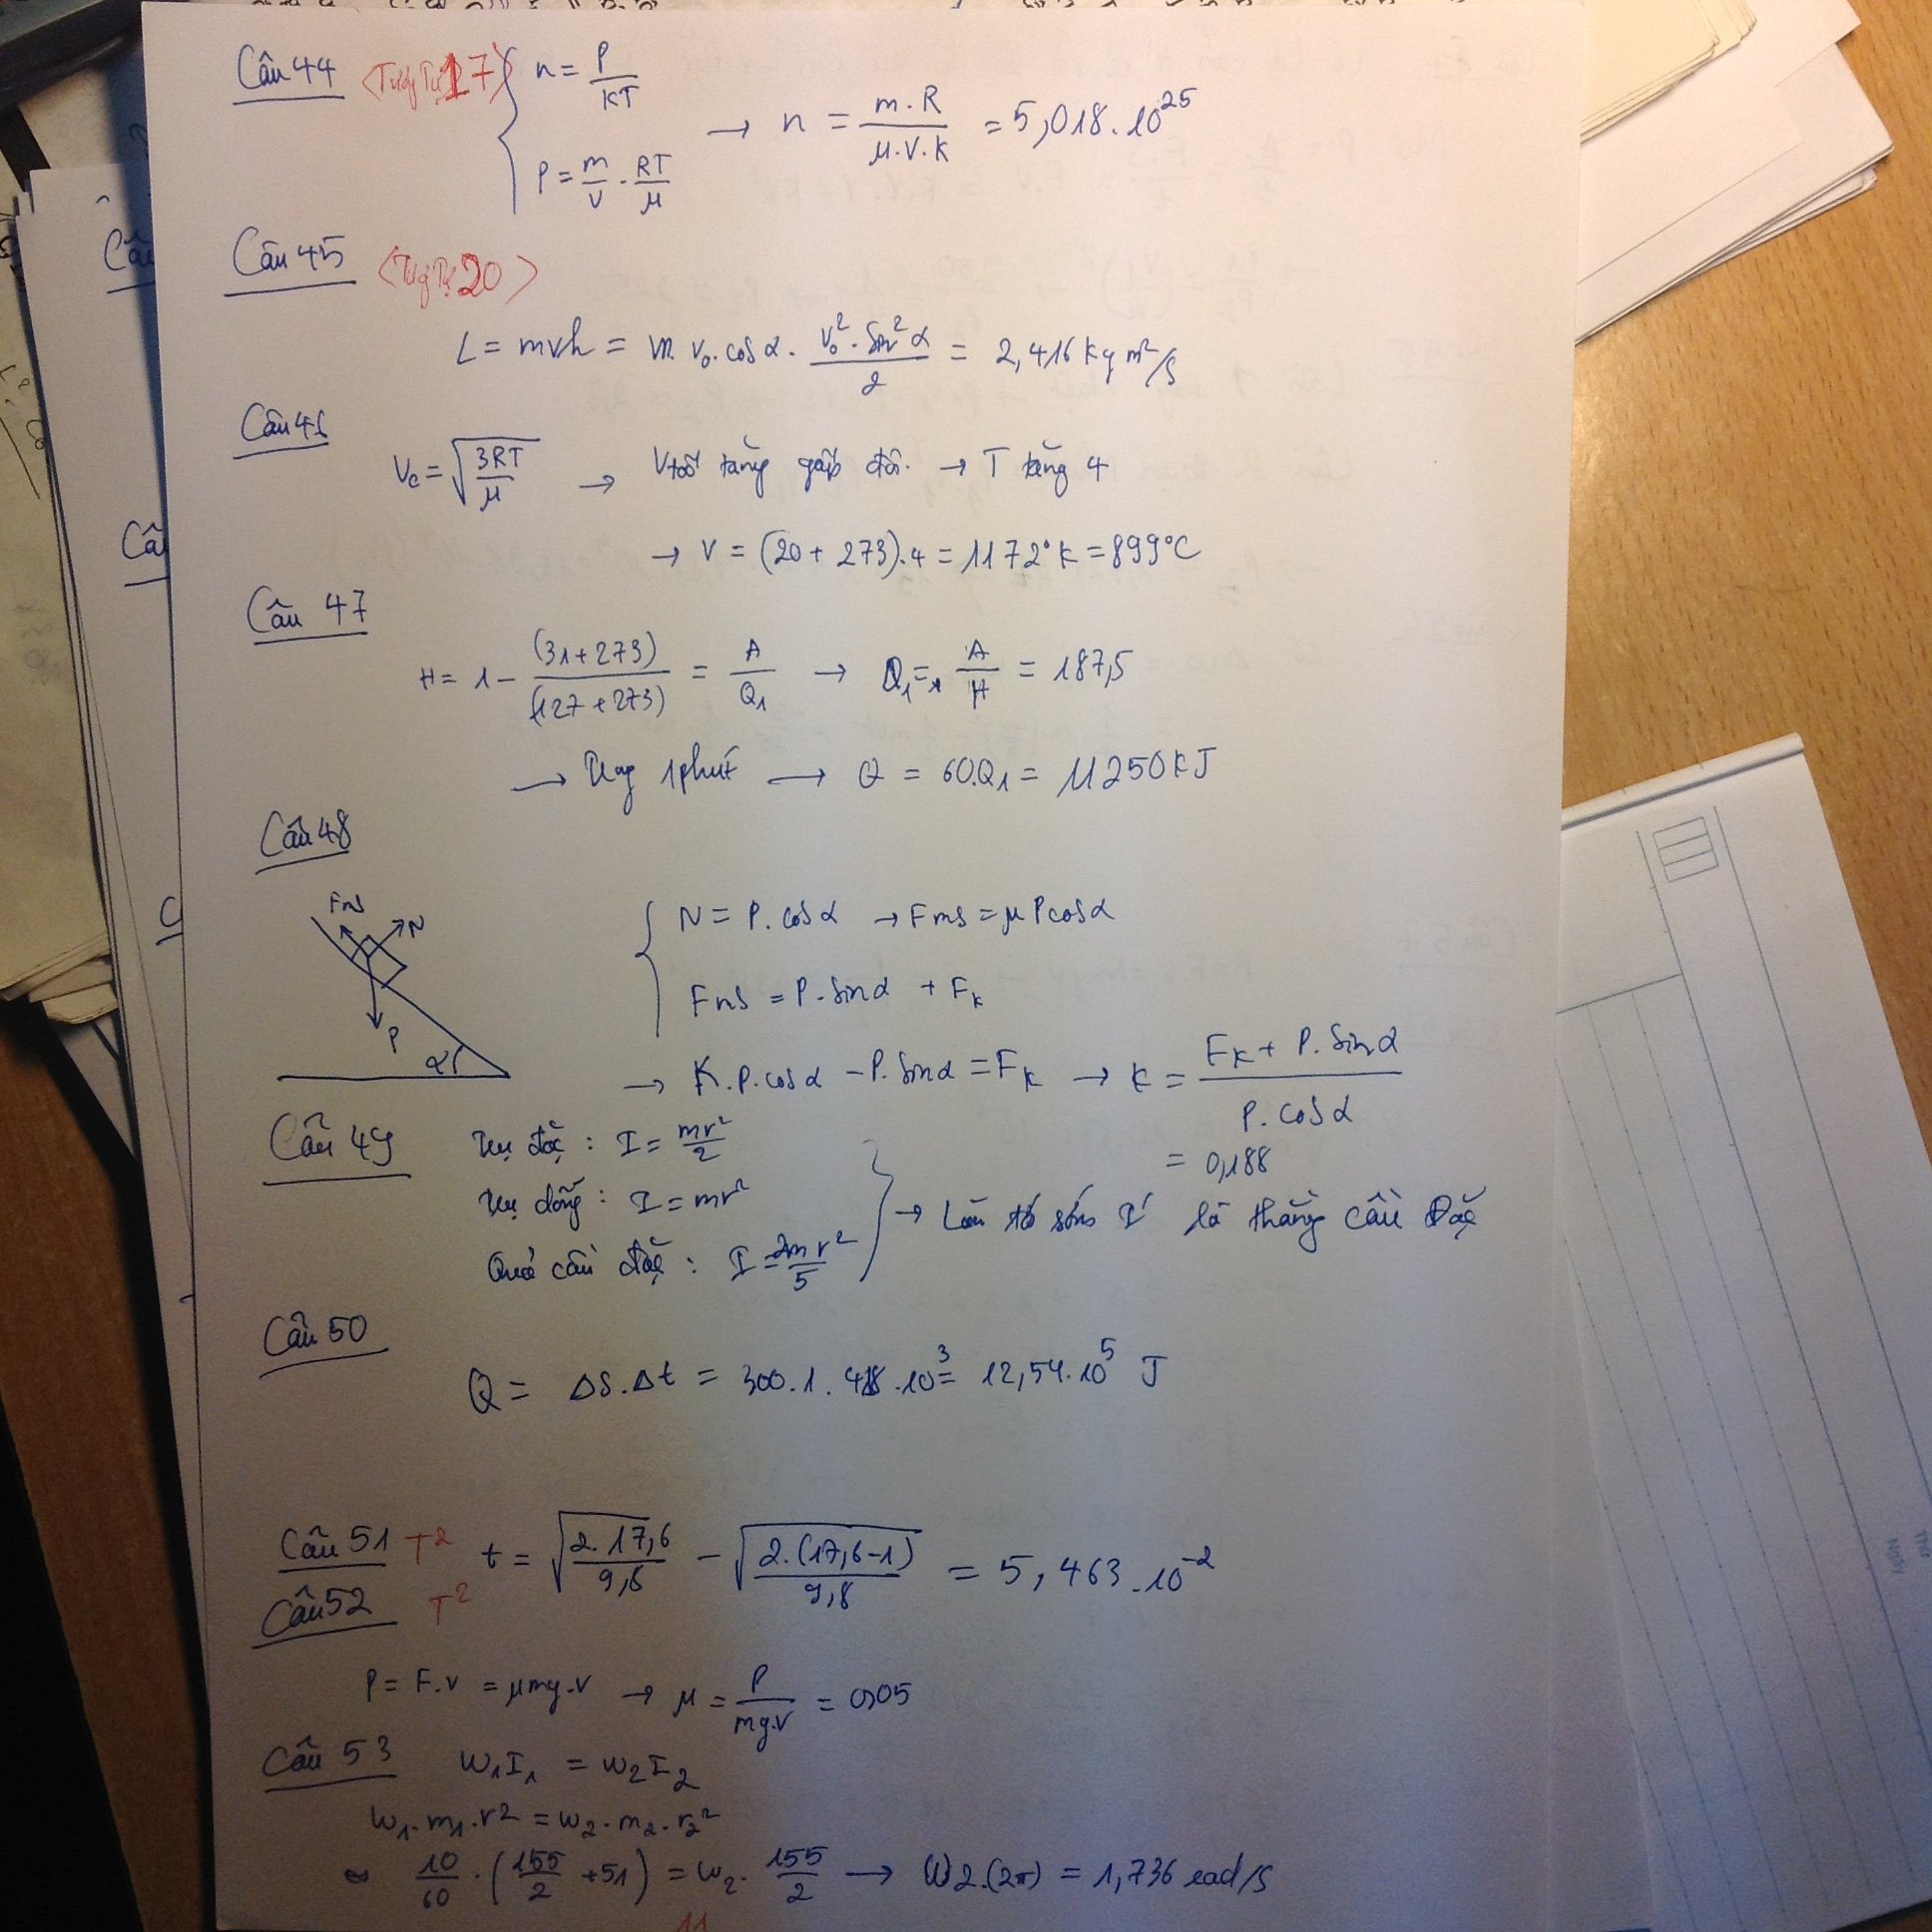 Câu 44 <Tương Tự 17> n = P/KT
P = m/V . RT/μ → n = m.R/μ.V.k = 5,018.10^25
Câu 45 <Tương Tự 20>
L = mvh = m.v₀.cosα. v₀².sin²α/2 = 2,416 kg m²/s
Câu 46
Vc = √(3RT/μ) → V tốc tăng gấp đôi → T tăng 4
→ V = (20 + 273).4 = 1172°K = 899°C
Câu 47
H = 1 - (31+273)/(127+273) = A/Q₁ → Q₁ = A/H = 187,5
→ Trong 1 phút → Q = 60.Q₁ = 11250KJ
Câu 48
Fms N P α
N = P.cosα → Fms = μPcosα
Fms = P.sinα + Fk
→ K.P.cosα - P.sinα = Fk → k = (Fk + P.sinα)/(P.cosα)
= 0,188
Câu 49 Trụ đặc : I = mr²/2
Trụ rỗng : I = mr²
Quả cầu đặc : I = 2mr²/5 → là thằng cầu Đặc
Câu 50
Q = ΔS.Δt = 300.1.418.10³ = 12,54.10⁵ J
Câu 51 T² t = √(2.17,6/9,8) - √(2.(17,6-1)/9,8) = 5,463.10⁻²
Câu 52 T²
P = F.v = μmg.v → μ = P/mg.v = 0,05
Câu 53 ω₁I₁ = ω₂I₂
ω₁.m₁.r² = ω₂.m₂.r₂²
10/60 . (155/2 + 51) = ω₂. 155/2 → ω2.(2π) = 1,736 rad/s
11